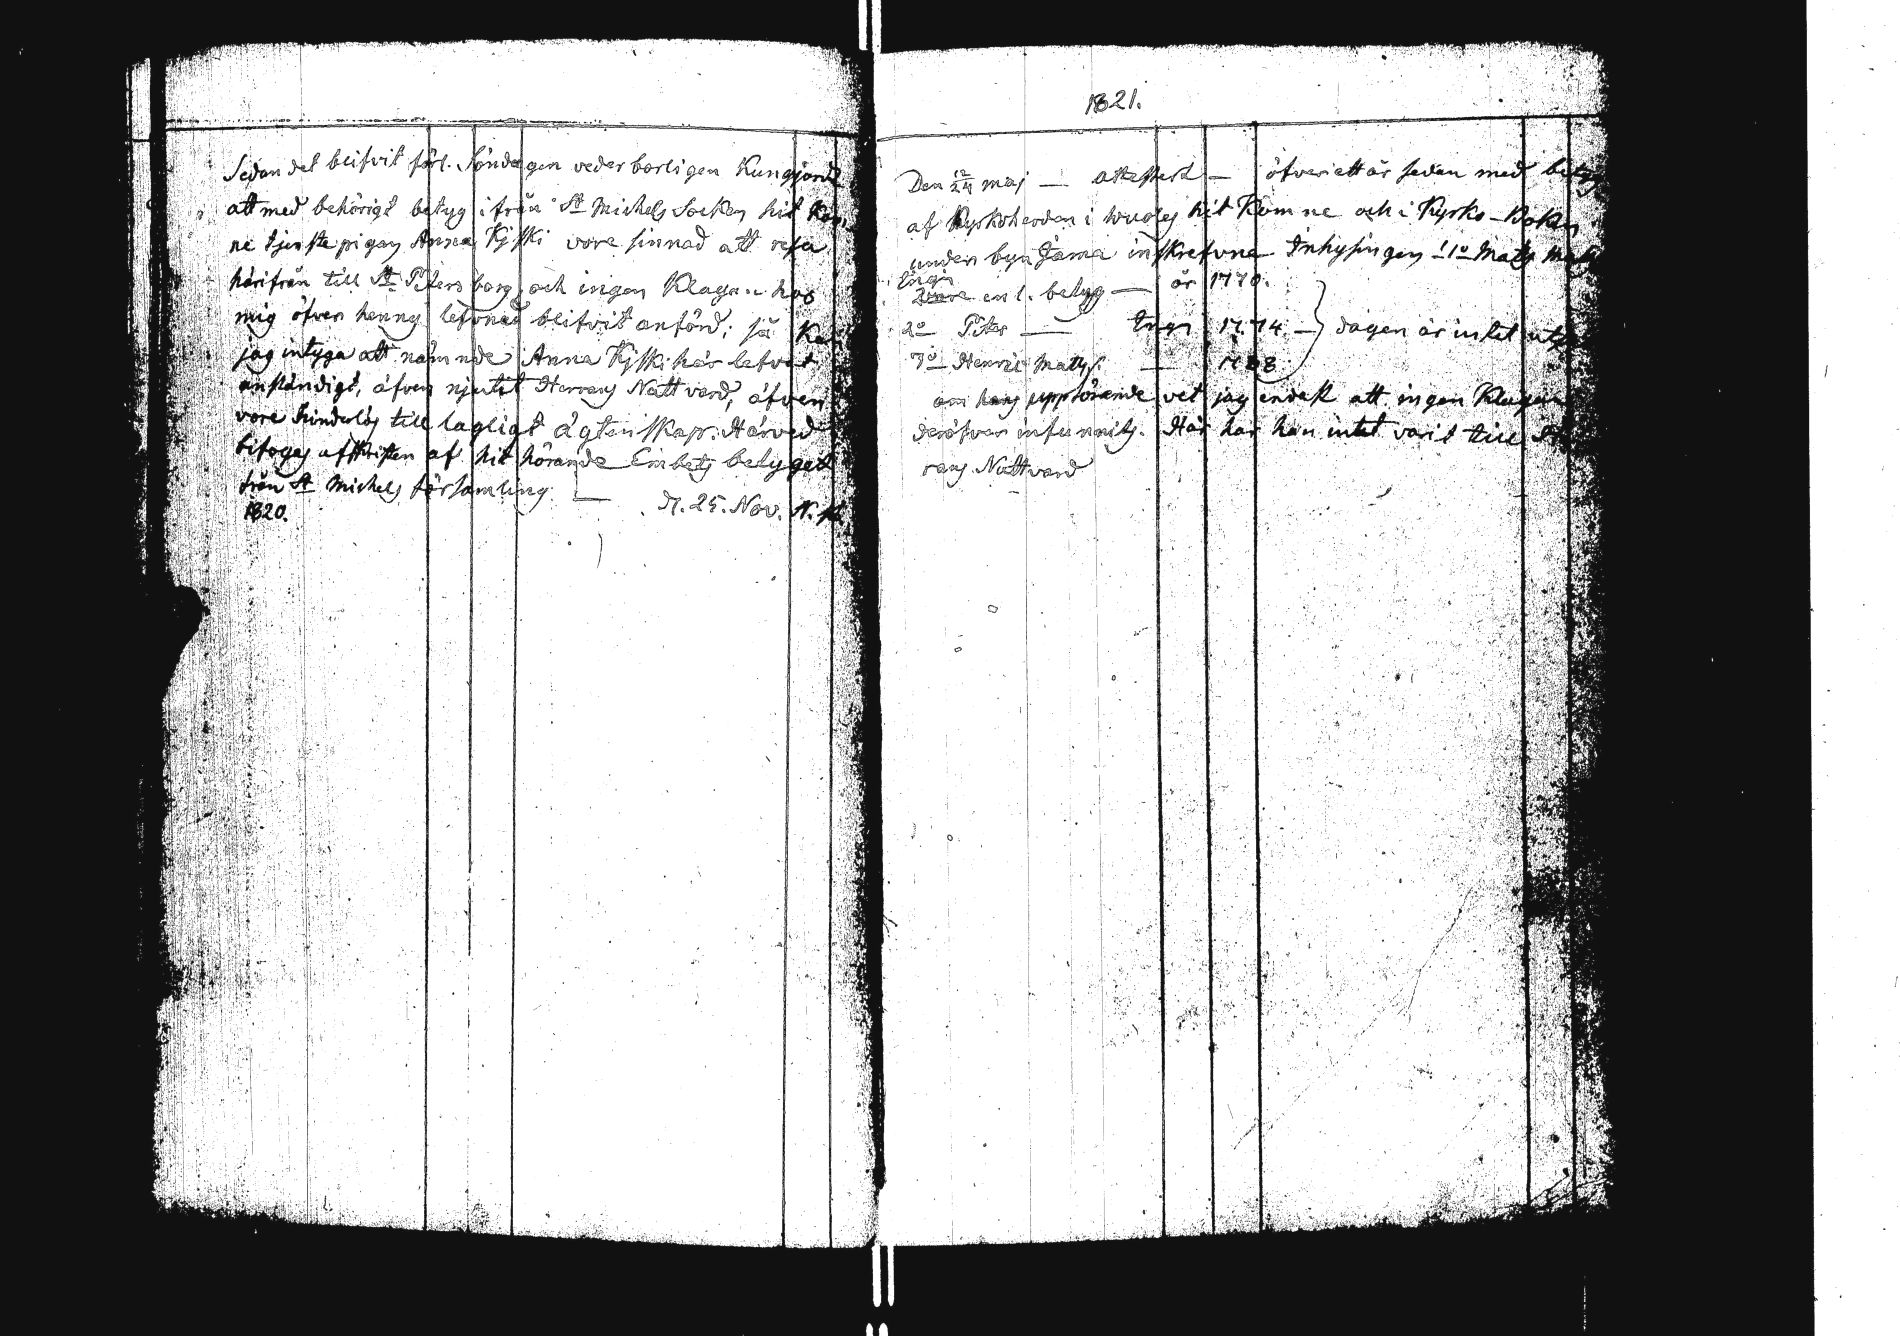 Sedan det blifvit förl. Söndagen vederborligen Kungjordt
att med behörigt betyg ifrån St Michels Socken hit Kom
ne tjenste pigan Anna Kjsski vore sinnad att resa
härifrån till St Petersborg och ingen Klagan hos
mig öfver hennes lefvnad blifvit anförd; så Kan
jag intyga att nämnde Anna Kjsski här lefvat
anständigt, äfven njutit Herrans Nattvard, äfven
vore hinderlös till lagligt ägtenskap. Härved
bifogas afskriften af hit hörande Embets betyget
från St Michels församling — d. 25. Nov. N. st.
1820.
1821.
Den 12/24 maj — attesterat — öfver ett år sedan med betyg
af Kyrkoherden i hit Komne och i Kyrko-Boken
under byn Jama inskrefvne Inhysingen 1o Mats
Ingri
enl. betyg — år 1770.
2o Peter — 1774 — dagen är intet
3o Henric Mats. — 1788
om hans uppförande vet jag endast att ingen Klagan
deröfver infunnits. Här har han intet varit till
rans Nattvard